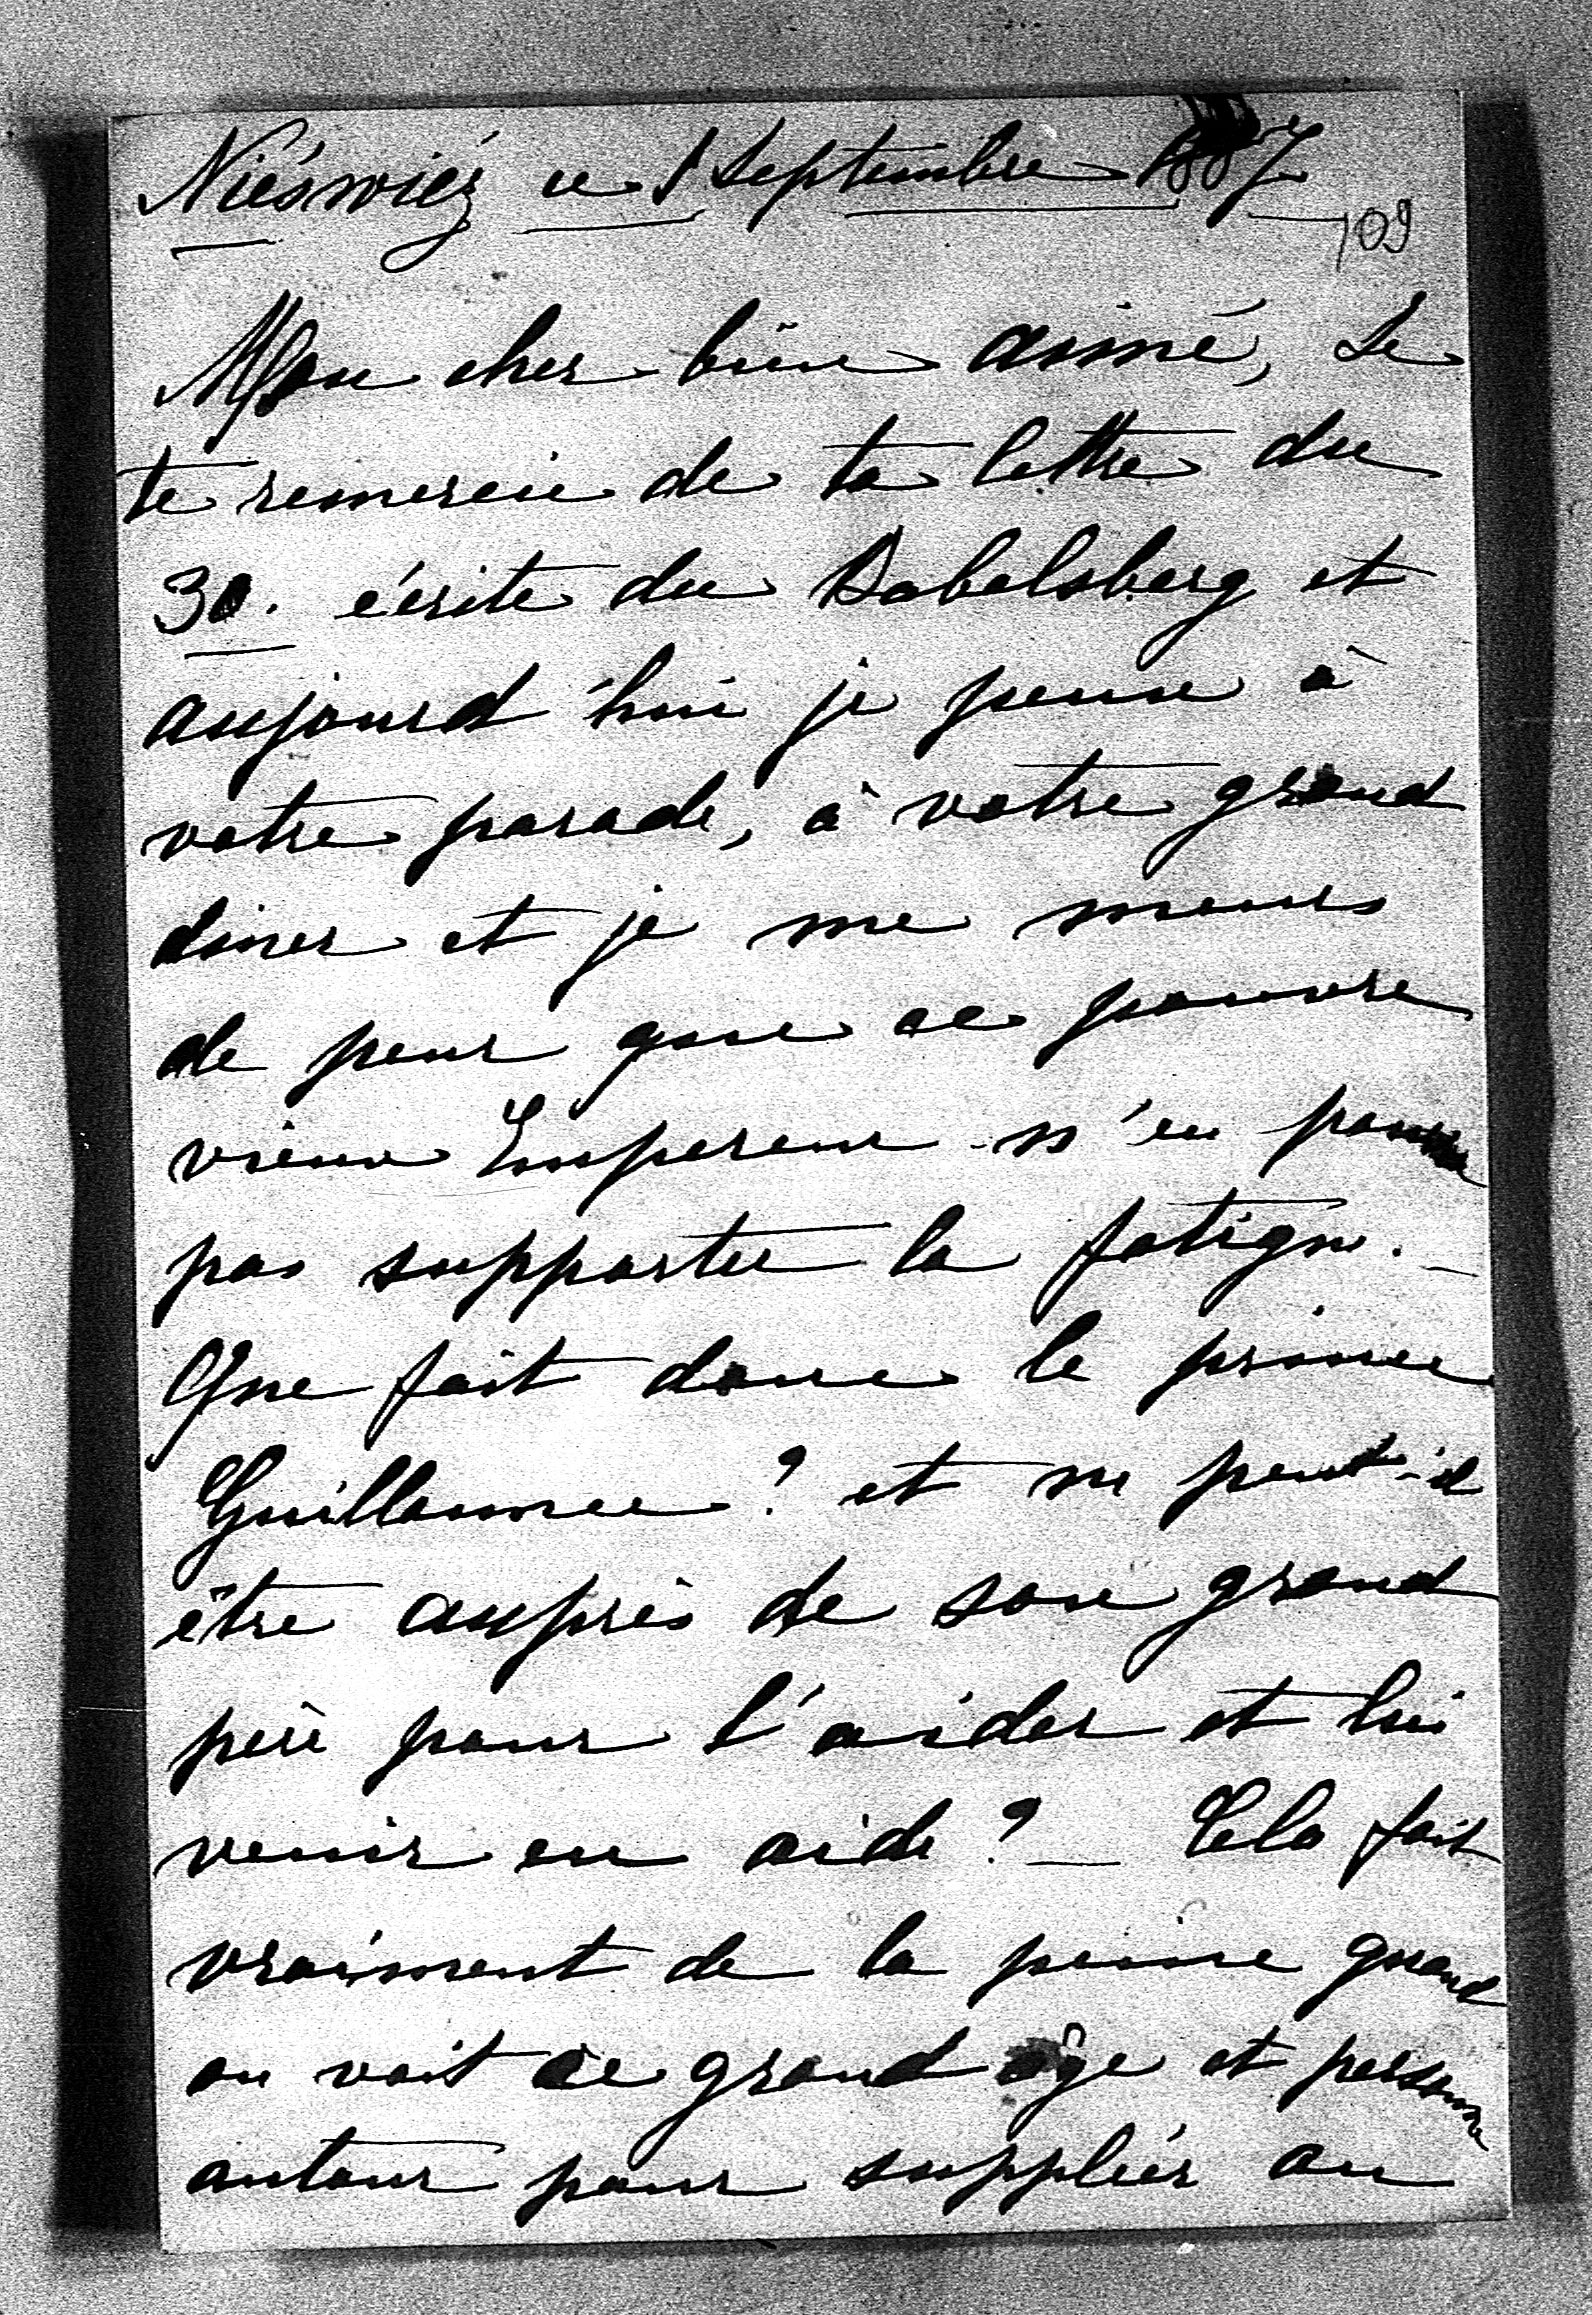 Nieśwież ce 1 Septembre 1887
109
Mon cher bien aimé, Je
te remercie de ta lettre du
30. écrite du Babelsberg et
aujourd'hui je pense à
votre parade, à votre grand
diner et je me meurs
de peur que ce pauvre
vieux Empereur n'en pourra
pas supporter la fatigue. —
Que fait donc le prince
Guillaume? et ne peut-il
être auprès de son grand
père pour l'aider et lui
venir en aide? — Cela fait
vraiment de la peine quand
on voit ce grand âge et personne
autour pour suppléer au